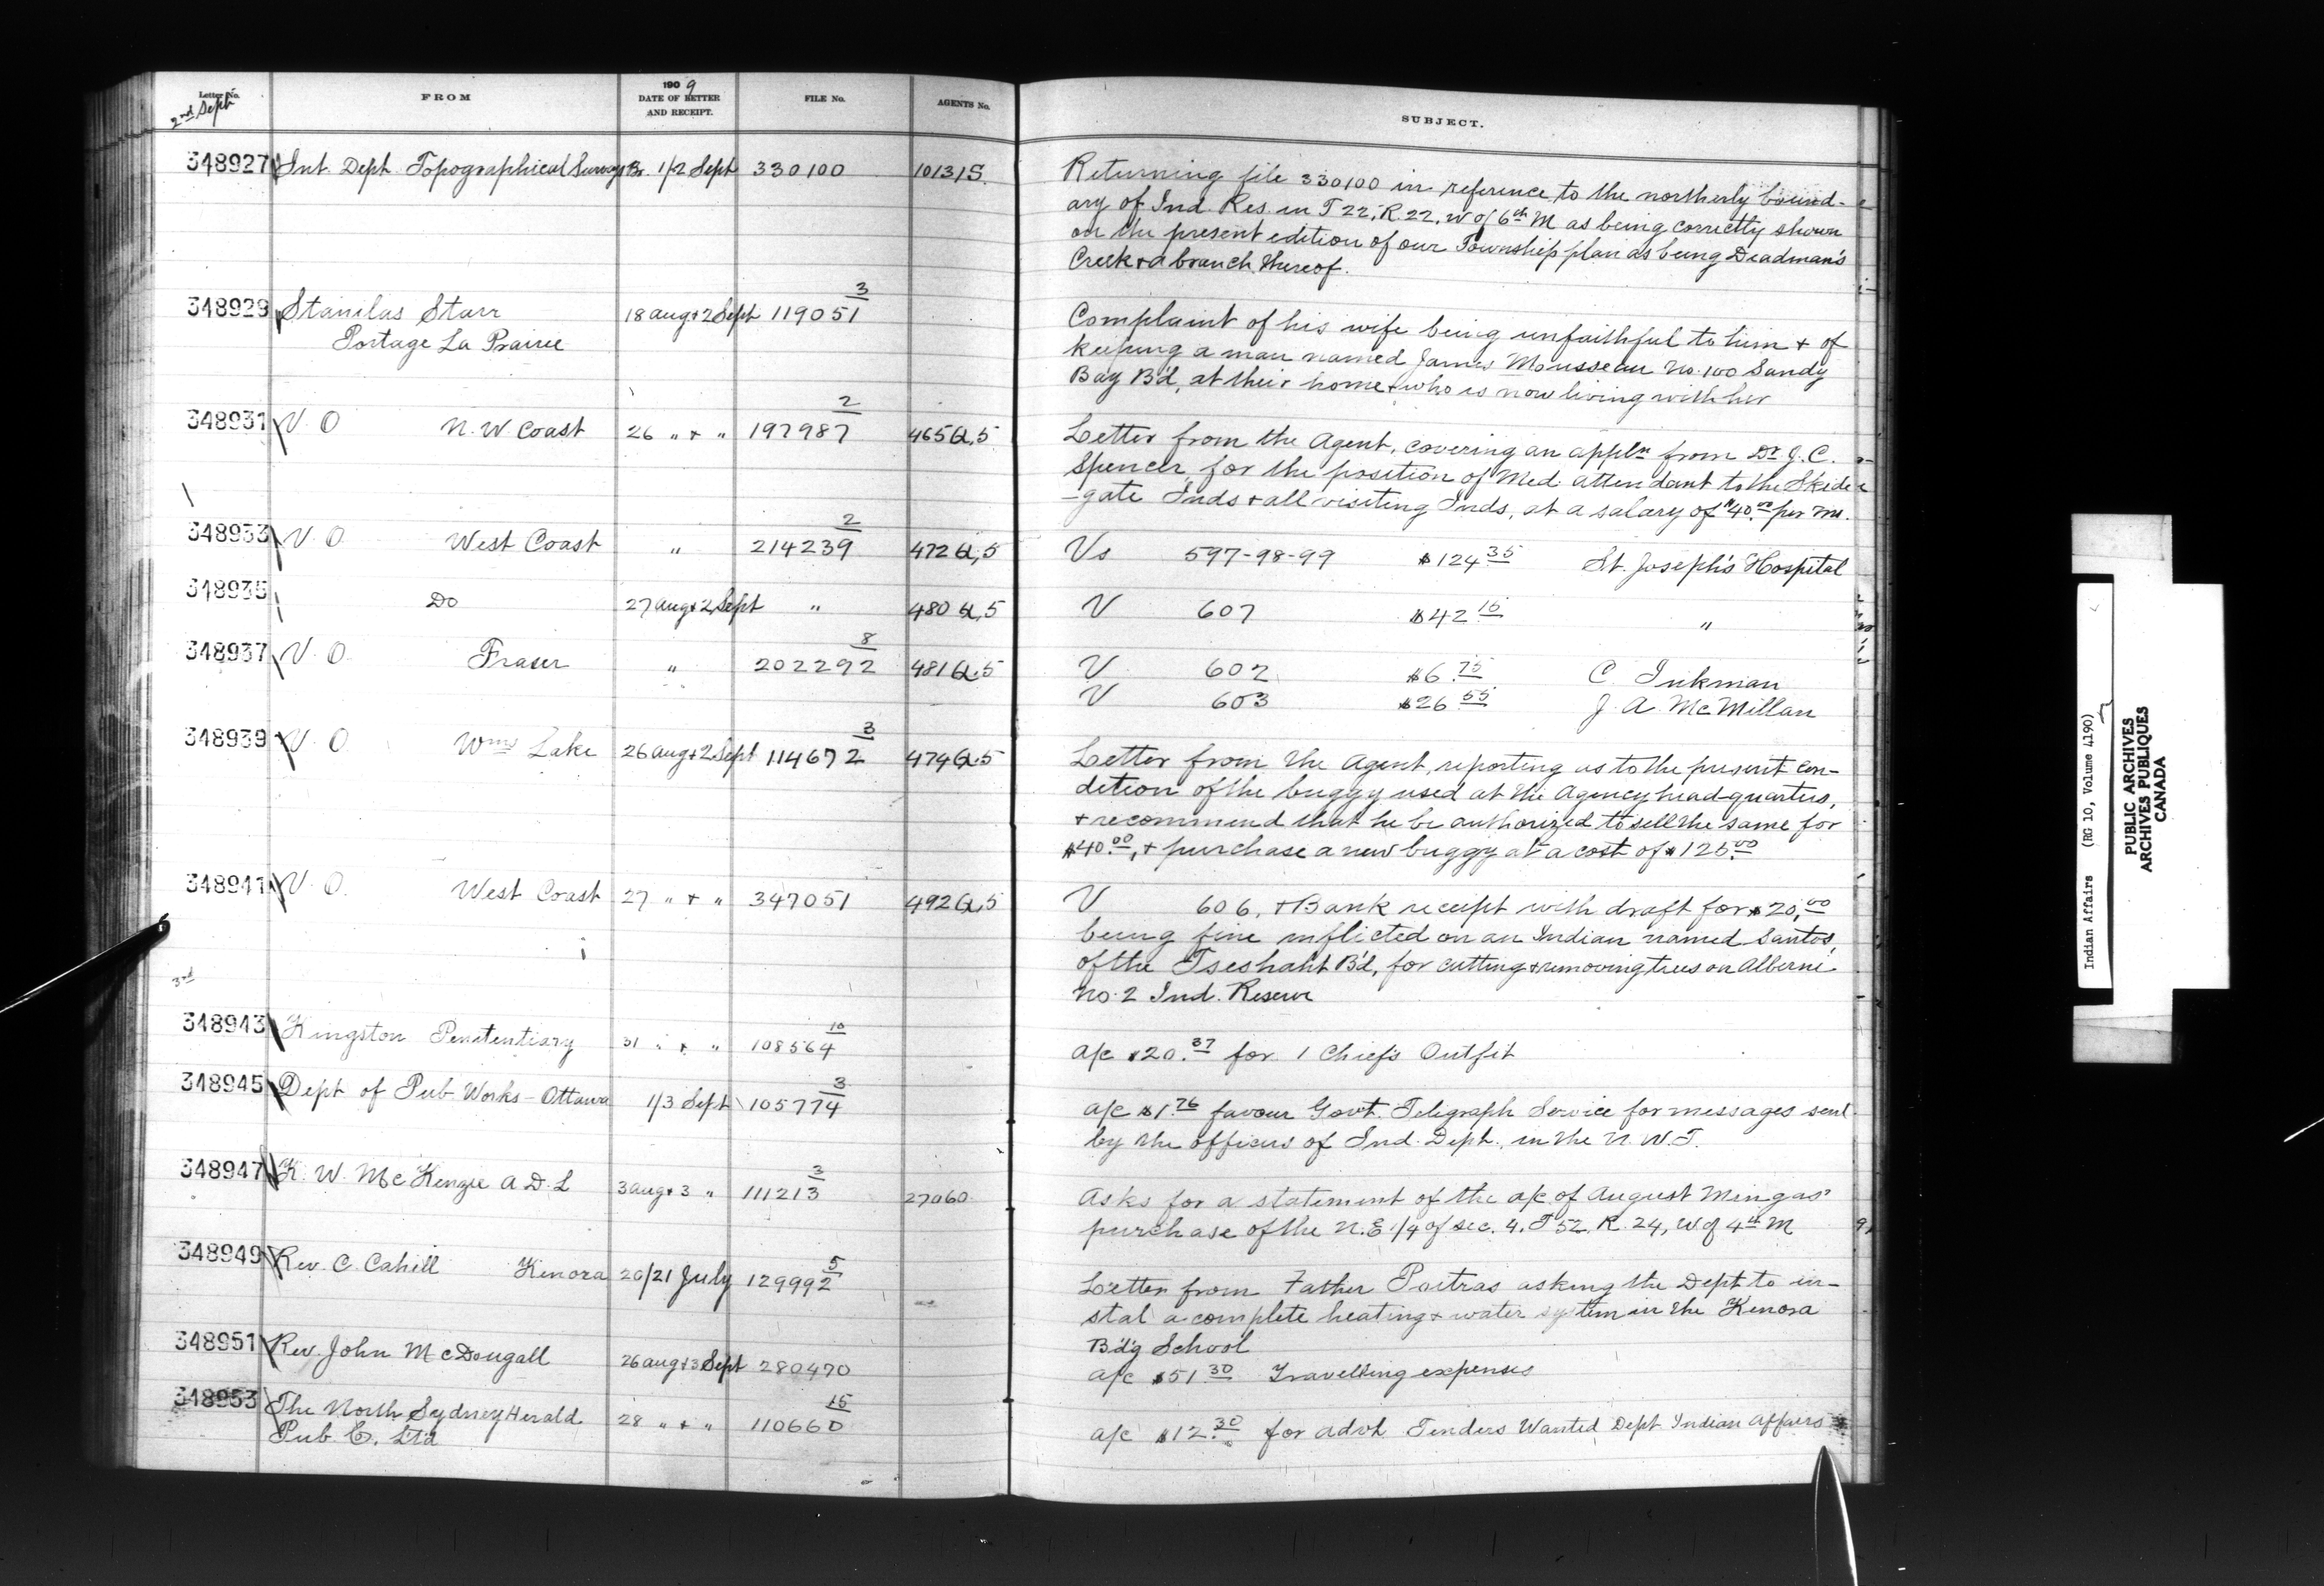 Letter No. FROM 1909 DATE OF LETTER AND RECEIPT. FILE No. AGENTS No. SUBJECT.
2nd Sept
348927 Int. Dept. Topographical Surveys Br. 1/2 Sept 330100 10131S Returning file 330100 in reference to the northerly bound-
ary of Ind. Res. in T 22, R. 22, W of 6th M as being correctly shown
on the present edition of our Township plan as being Deadman's
Creek & a branch thereof.
348929 Stanilas Starr 18 Aug & 2 Sept 119051 3 Complaint of his wife being unfaithful to him & of
Portage La Prairie keeping a man named James Mousseau No. 100 Sandy
Bay B'd, at their home & who is now living with her
348931 V. O. N. W Coast 26 " & " 197987 2 465 Q.5 Letter from the Agent, covering an appln from Dr J. C.
Spencer, for the position of Med. attendant to the Skide
-gate Inds & all visiting Inds, at a salary of $40.00 per m.
348933 V. O. West Coast " 214239 2 472 Q.5 Vs 597-98-99 $124.35 St. Joseph's Hospital
348935 Do 27 Aug & 2 Sept " 480 Q.5 V 607 $42.15 "
348937 V. O. Fraser " 202292 8 481 Q.5 V 602 $6.75 C. Inkman
V 603 $26.55 J. A. McMillan
348939 V. O. Wms Lake 26 Aug & 2 Sept 114672 3 474 Q.5 Letter from the Agent, reporting as to the present con-
dition of the buggy used at the Agency head-quarters,
& recommend that he be authorized to sell the same for
$40.00, & purchase a new buggy at a cost of $125.00
348941 V. O. West Coast 27 " & " 347051 492 Q.5 V 606, & Bank receipt with draft for $20.00
being fine inflicted on an Indian named Santos,
of the Tseshaht B'd, for cutting & removing trees on Alberni
No. 2 Ind. Reserve
3rd
348943 Kingston Penitentiary 31 " & " 108564 10 a/c $20.37 for 1 Chief's Outfit
348945 Dept of Pub Works - Ottawa 1/3 Sept 105774 3 a/c $1.76 favour Govt. Telegraph Service for messages sent
by the officers of Ind. Dept. in the N. W. T.
348947 K. W. McKenzie A D. L 3 Aug & 3 " 111213 3 27060 Asks for a statement of the a/c of August Mingas'
purchase of the N. E 1/4 of sec. 4, T 52, R. 24, W of 4th M
348949 Rev. C. Cahill Kenora 20/21 July 129992 5 Letter from Father Poitras asking the Dept to in-
stal a complete heating & water system in the Kenora
B'd'g School
348951 Rev. John McDougall 26 Aug & 3 Sept 280470 a/c $51.30 Travelling expenses
348953 The North Sydney Herald 28 " & " 110660 15 a/c $12.30 for advt. Tenders Wanted Dept Indian Affairs
Pub Co. Ltd
Indian Affairs (RG 10, Volume 4190)
PUBLIC ARCHIVES
ARCHIVES PUBLIQUES
CANADA